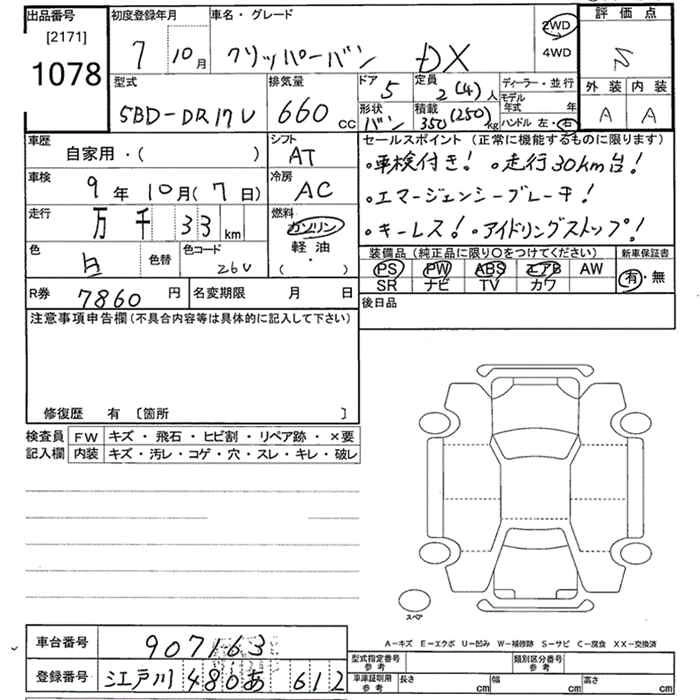 出品番号
[2171]
1078
初度登録年月
7 10月
車名・グレード
クリッパーバン DX
2WD
4WD
評価点
S
外装 内装
A A
型式
5BD-DR17V
排気量
660 cc
ドア
5
定員
2(4)人
形状
バン
積載
350(250)kg
ディーラー・並行
モデル年式 年
ハンドル 左・右
車歴
自家用・( )
シフト
AT
セールスポイント (正常に機能するものに限ります)
・車検付き! ・走行30km台!
・エマージェンシーブレーキ!
・キーレス! ・アイドリングストップ!
車検
9年10月(7日)
冷房
AC
走行
万千 33 km
燃料
ガソリン
軽油
( ・ )
色
白
色替
色コード
26U
装備品(純正品に限り○をつけてください)
PS PW ABS エアB AW
SR ナビ TV カワ
新車保証書
有・無
R券 7860円
名変期限 月 日
後日品
注意事項申告欄(不具合内容等は具体的に記入して下さい)
修復歴 有 〔箇所 〕
検査員
記入欄
FW キズ・飛石・ヒビ割・リペア跡・×要
内装 キズ・汚レ・コゲ・穴・スレ・キレ・破レ
スペア
A-キズ E-エクボ U-凹み W-補修跡 S-サビ C-腐食 XX-交換済
車台番号 907163
登録番号 江戸川 480 あ 612
型式指定番号
参考
類別区分番号
参考
車庫証明用
参考
長さ cm 幅 cm 高さ cm